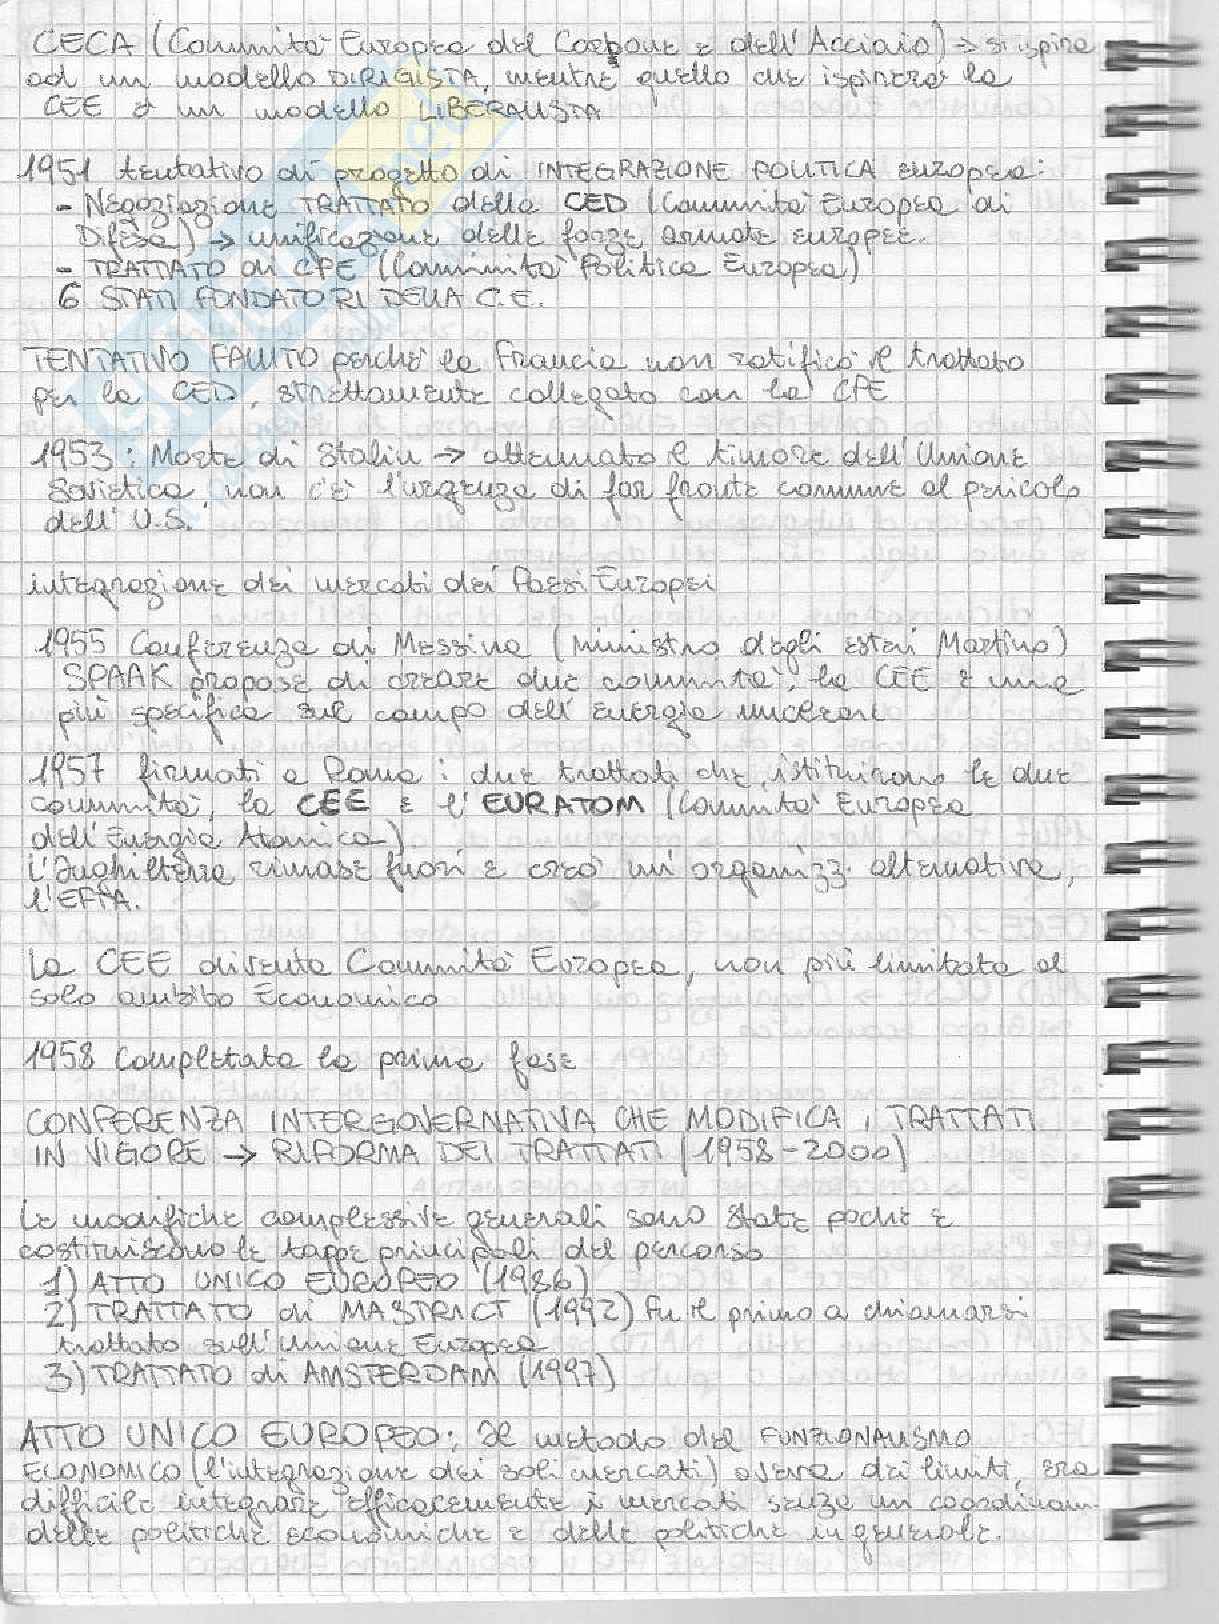 CECA (Comunità Europea del Carbone e dell'Acciaio) → si ispira
ad un modello DIRIGISTA, mentre quello che ispirerà la
CEE è un modello LIBERALISTA
1951 tentativo di progetto di INTEGRAZIONE POLITICA europea:
- Negoziazione TRATTATO della CED (Comunità Europea di
Difesa) → unificazione delle forze armate europee.
- TRATTATO di CPE (Comunità Politica Europea)
6 STATI FONDATORI DELLA C.E.
TENTATIVO FALLITO perché la Francia non ratificò il trattato
per la CED, strettamente collegato con la CPE
1953: Morte di Stalin → attenuato il timore dell'Unione
Sovietica, non c'è l'urgenza di far fronte comune al pericolo
dell'U.S.
integrazione dei mercati dei Paesi Europei
1955 Conferenza di Messina (ministro degli esteri Martino)
SPAAK propose di creare due comunità, la CEE e una
più specifica sul campo dell'energia nucleare
1957 firmati a Roma i due trattati che istituirono le due
comunità, la CEE e l'EURATOM (Comunità Europea
dell'Energia Atomica).
L'Inghilterra rimase fuori e creò un'organizz. alternativa,
l'EFTA.
La CEE diventa Comunità Europea, non più limitata al
solo ambito Economico
1958 Completata la prima fase
CONFERENZA INTERGOVERNATIVA CHE MODIFICA i TRATTATI
IN VIGORE → RIFORMA DEI TRATTATI (1958-2000)
Le modifiche complessive generali sono state poche e
costituiscono le tappe principali del percorso
1) ATTO UNICO EUROPEO (1986)
2) TRATTATO di MASTRICT (1992) Fu il primo a chiamarsi
trattato sull'Unione Europea
3) TRATTATO di AMSTERDAM (1997)
ATTO UNICO EUROPEO: Il metodo del FUNZIONALISMO
ECONOMICO (l'integrazione dei soli mercati) aveva dei limiti, era
difficile integrare efficacemente i mercati senza un coordinam.
delle politiche economiche e delle politiche in generale.